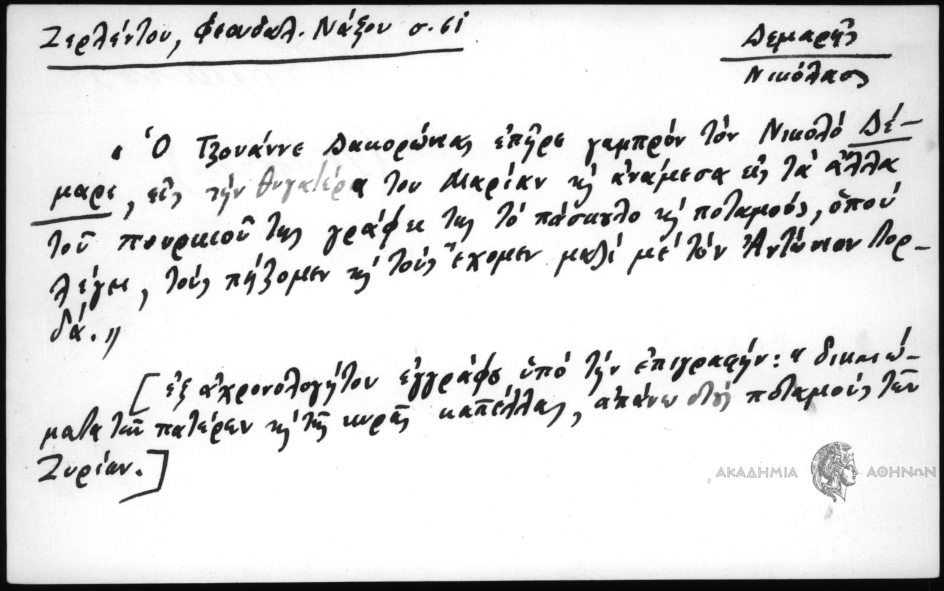 Ζερλέντου, Φεουδαλ. Νάξου σ. 61
Δεμαρῆς
Νικόλαος
« Ὁ Τζουάννε Δακορώνιας ἐπῆρε γαμπρόν τόν Νικολό Δέ-
μαρε, εἰς τήν θυγατέρα του Μαρίαν κ' ἀνάμεσα εἰς τά ἄλλα
τοῦ πουρκιοῦ της γράφει της τό πάσκουλο κ' ποταμούς, ὁπού
λέγει, τούς πήζομεν κ' τούς ἔχομεν μαζί μέ τόν Ἀντώνιον Λορ-
δά. »
[ ἐξ ἀχρονολογήτου ἐγγράφου ὑπό τήν ἐπιγραφήν: « δικαιώ-
ματα τῶν πατέρων κ' τῆς κυρᾶς καπέλλας, ἀπάνω στούς ποταμούς τῶν
Ζυρίων. ]
ΑΚΑΔΗΜΙΑ ΑΘΗΝΩΝ